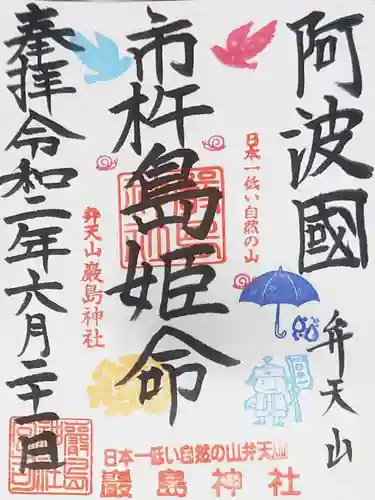 阿波國
弁天山
市杵島姫命
日本一低い自然の山
奉拝令和二年六月二十一日
弁天山嚴島神社
日本一低い自然の山弁天山
嚴島神社